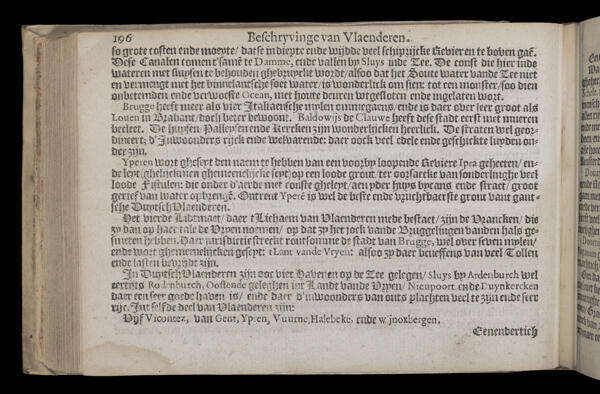 196 Beschryvinge van Vlaenderen.
so grote costen ende moeyte/ datse in diepte ende wijdde veel schiprijcke Revieren te boven gaē.
Dese Canalen comen t'samē te Damme, ende vallen by Sluys inde Zee. De const die hier inde
wateren met sluysen te behouden ghebruyckt wordt/ alsoo dat het Soute water vande Zee niet
en vermengt met het binnelantsche soet water/ is wonderlick om sien: tot een monster/ soo dien
onbekenden ende verwoesten Ocean, met houte deuren wtgesloten ende ingelaten wort.
Brugge heeft meer als vier Italiaensche mylen ommegaens/ ende is daer over leer groot als
Loven in Brabant/ doch beter bewoont. Baldowijs de Clauwe heeft dese stadt eerst met mueren
verciert. De huysen/ Palleysen ende Kercken zijn wonderlijcken heerlick. De straten wel geor-
dineert; d'Inwoonders rijck ende welvarende: daer oock veel edele ende geschickte luyden on-
der zijn.
Yperen wort gheseyt den naem te hebben van een voorby loopende Reviere Ipra geheeten/ en-
de leyt (ghelijck men ghemeenelijcke seyt) op een loode gront/ ter oorsaecke van sonderlinghe veel
loode Fistulen: die onder d'aerde met conste gheleyt/ aen yder huys bycans ende straet/ groot
gerief van water opbrengē. Ontrent Yperē is wel de beste ende vruchtbaerste gront vant gant-
sche Duytsch Vlaenderen.
Het vierde Lidtmaet/ daer t'Lichaem van Vlaenderen mede bestaet/ zijn de Vrancken/ die
zy dan op haer tale de Vryen noemen/ op dat zy het jock vande Bruggelingen vanden hals ge-
smeten hebben. Haer jurisdictie streckt rontsomme de stadt van Brugge, wel over seven mylen/
ende wort ghemeenlijcken geseyt: t'Lant vande Vryen: alsoo zy daer beneffens van veel Tollen
ende lasten bevrijdt zijn.
In Duytsch Vlaenderen zijn ooc vier Havenen op de Zee gelegen/ Sluys by Ardenburch wel
eertijts Rodenburch, Oostende geleghen int Landt vande Vryen/ Nieupoort ende Duynkercken
daer een seer goede haven is/ ende daer d'inwoonders van outs plachten veel te zijn ende seer
rijc. Int selfde deel van Vlaenderen zijn:
Vijf Vicontez, van Gent, Ypren, Vuurne, Halebeke, ende winoxbergen.
Eenendertich